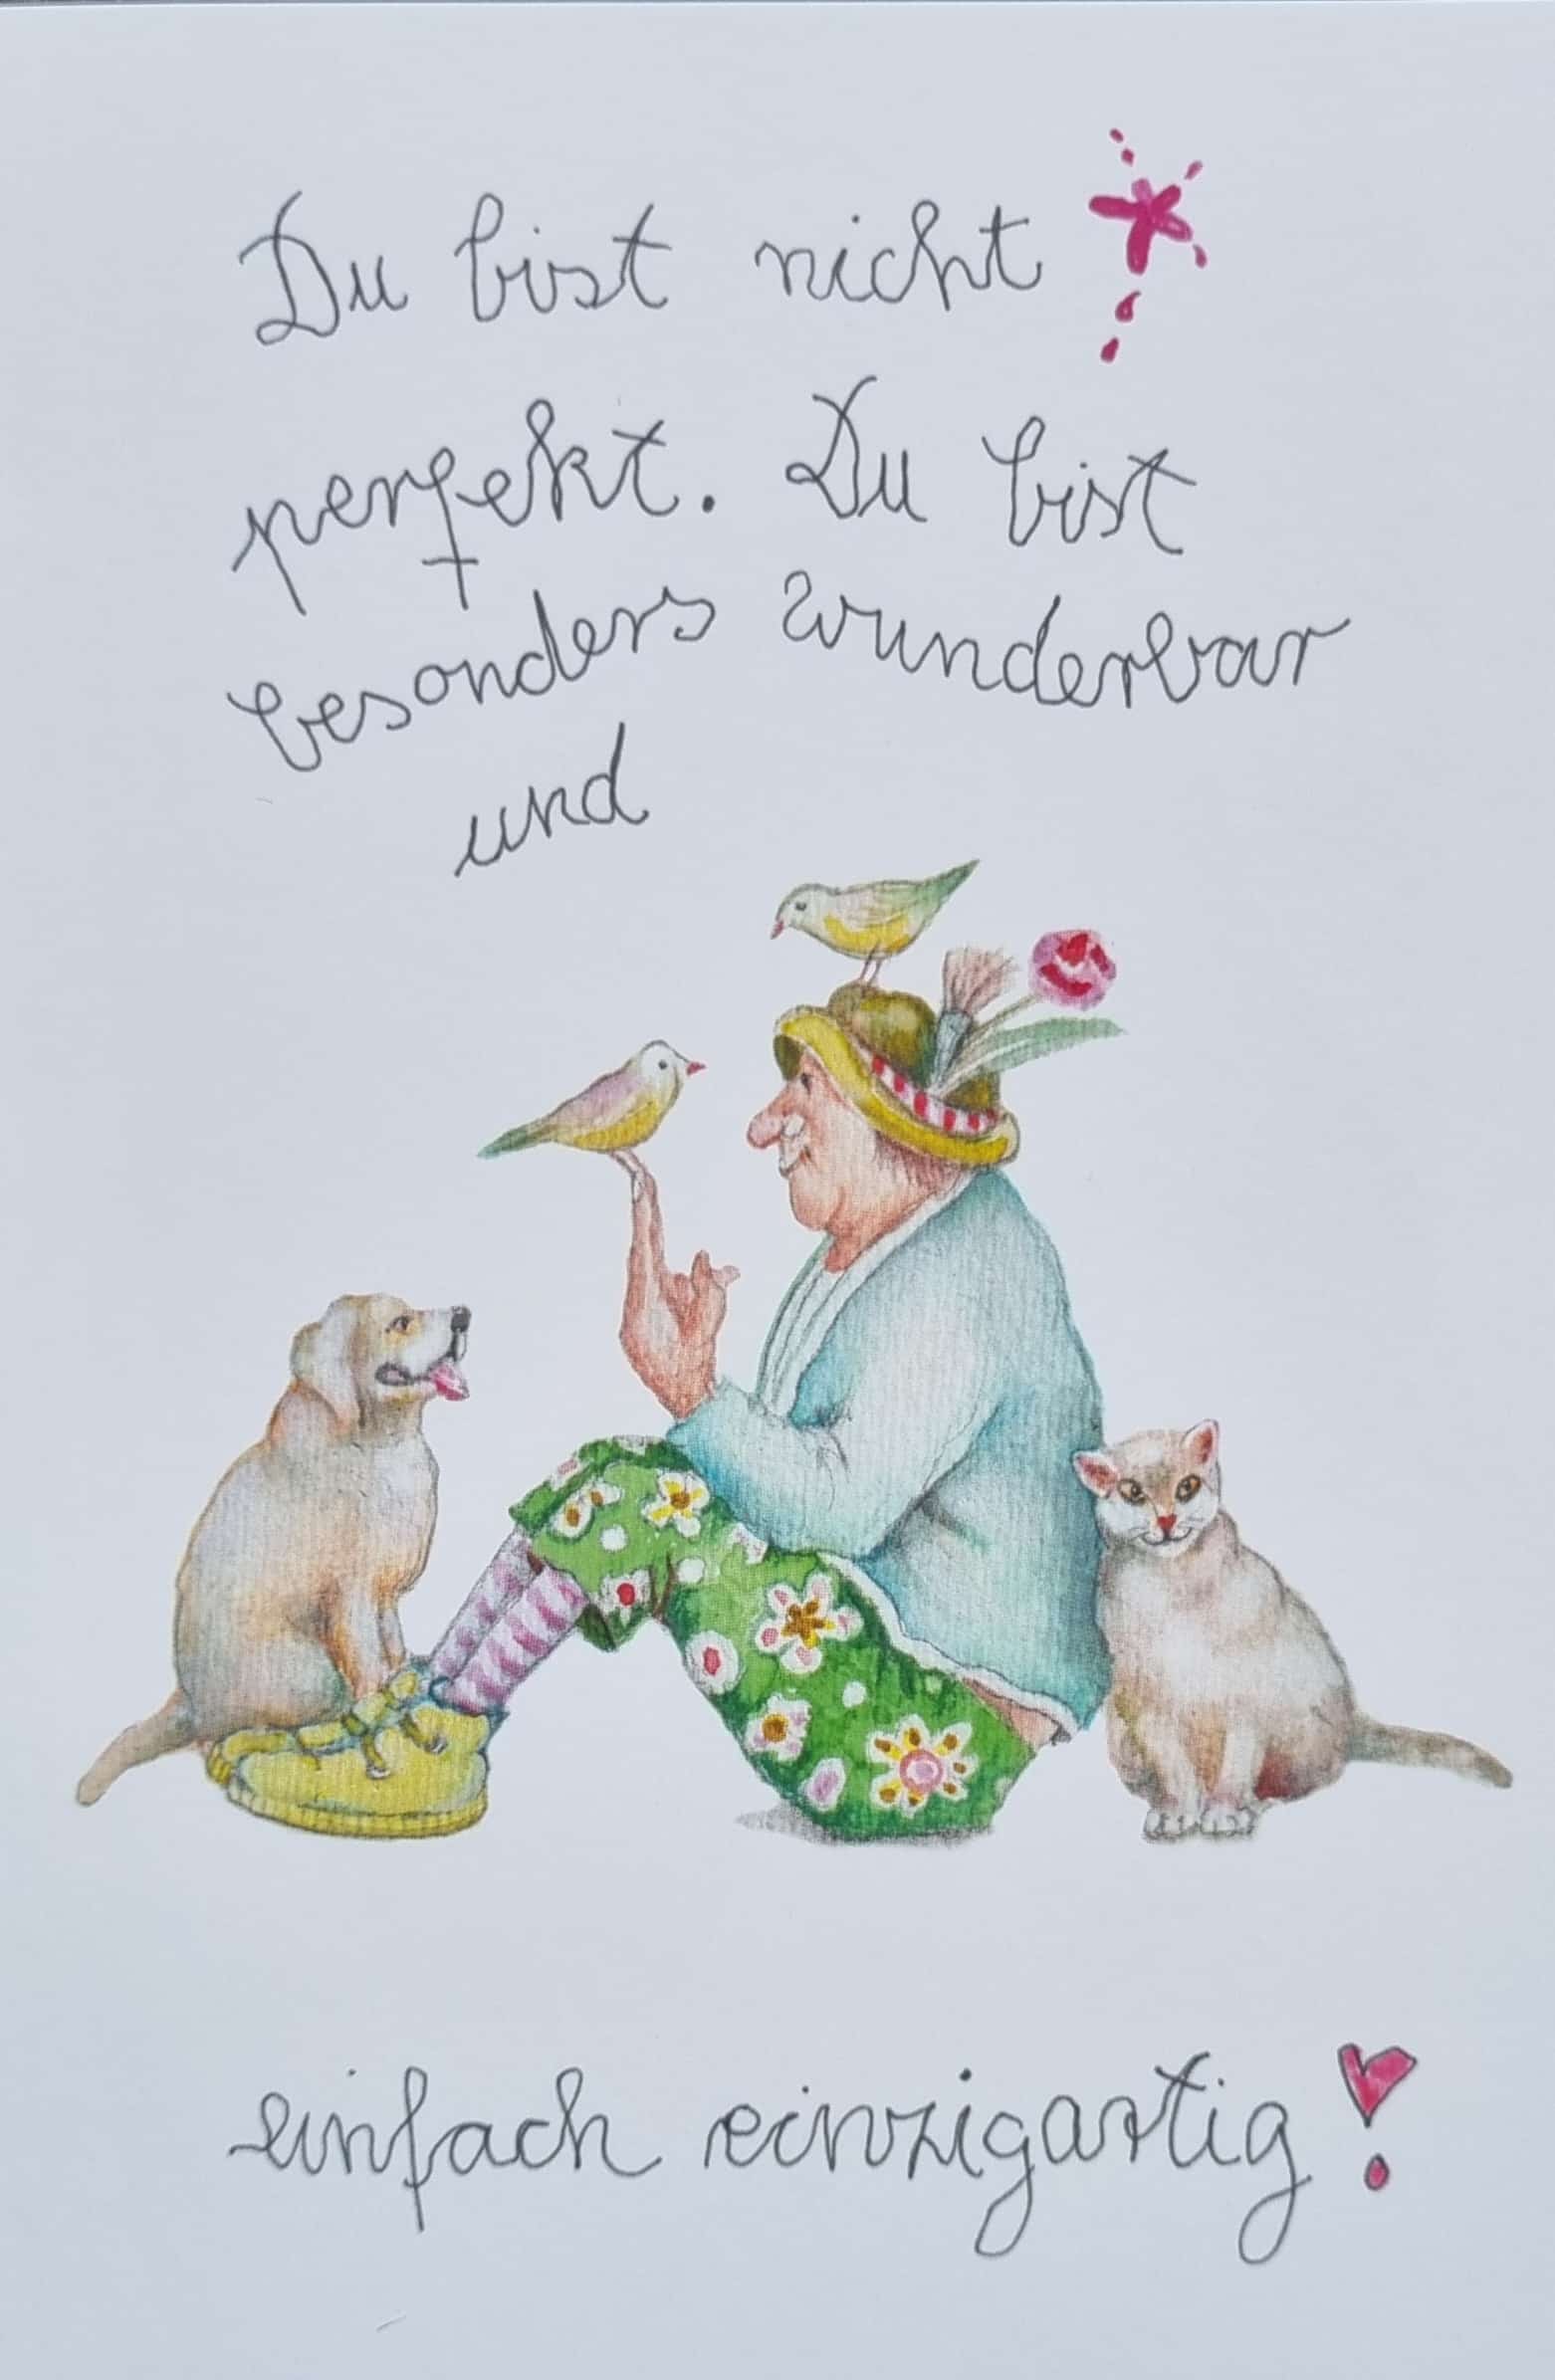 Du bist nicht
perfekt. Du bist
besonders wunderbar
und
einfach einzigartig!